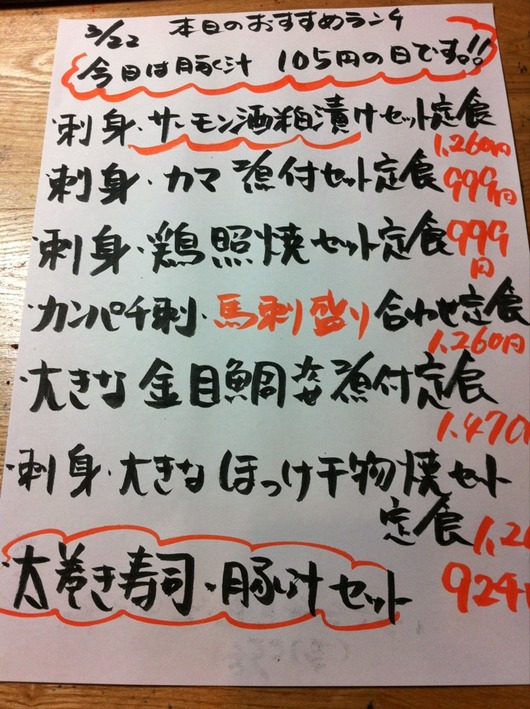 3/22 本日のおすすめランチ
今日は豚汁 105円の日です!!
・刺身・サーモン酒粕漬けセット定食
1,260円
・刺身・カマ 煮付セット定食 999円
・刺身・鶏照焼セット定食 999
円
・カンパチ刺・馬刺盛り合わせ定食
1,260円
・大きな金目鯛カブセ煮付定食
1,470
・刺身・大きなほっけ干物焼セット
定食 1,2
・太巻き寿司・豚汁セット 924